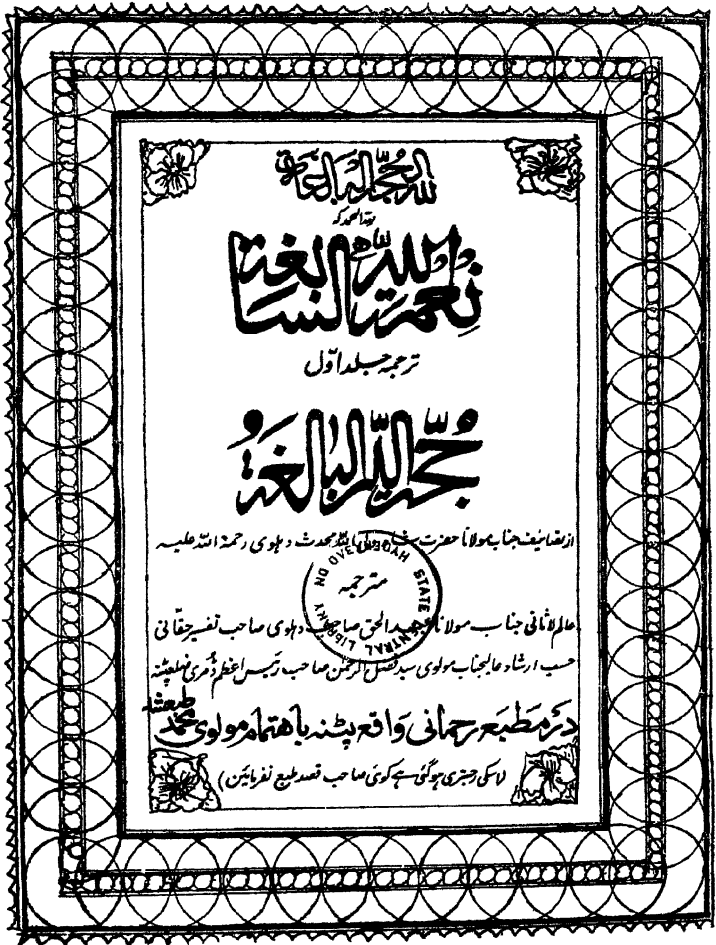 للہ الحجۃ البالغۃ
نعمۃ اللہ السابغۃ
ترجمہ جلد اوّل
حُجّۃ اللہ البالغۃ
از تصانیف جناب مولانا حضرت شاہ ولی اللہ محدث دہلوی رحمۃ اللہ علیہ
مترجمہ
STATE CENTRAL LIBRARY HYDERABAD
عالم لاثانی جناب مولانا عبدالحق صاحب دہلوی صاحب تفسیر حقانی
حسب ارشاد عالیجناب مولوی سید فضل الرحمٰن صاحب رئیس اعظم ڈمری ضلع پٹنہ
در مطبع رحمانی واقع پٹنہ باہتمام مولوی محمد
(اسکی رجسٹری ہوگئی ہے کوئی صاحب قصد طبع نفرمائین)